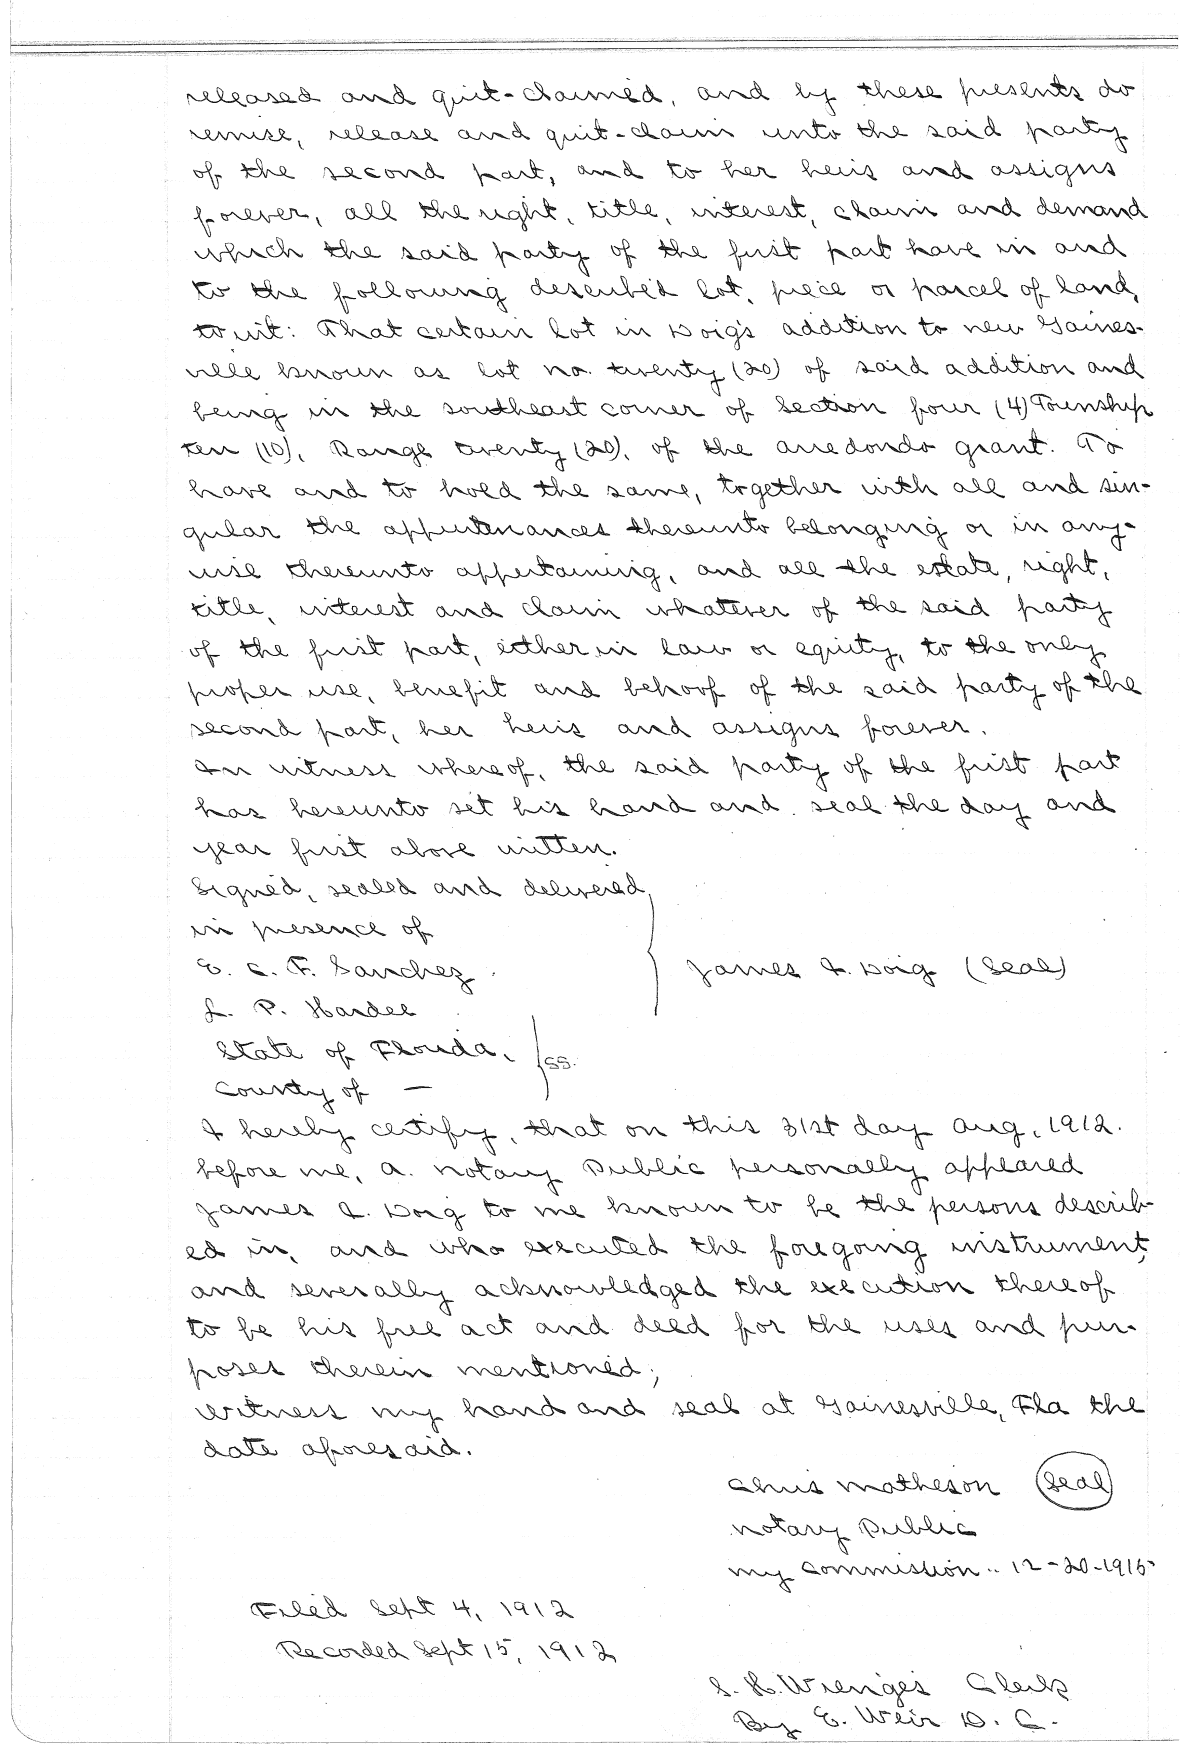 released and quit-claimed, and by these presents do
remise, release and quit-claim unto the said party
of the second part, and to her heirs and assigns
forever, all the right, title, interest, claim and demand
which the said party of the first part have in and
to the following described lot, piece or parcel of land,
to wit: That certain lot in Doig's addition to new Gaines-
ville known as lot no. twenty (20) of said addition and
being in the southeast corner of Section four (4) Township
ten (10), Range twenty (20), of the arredondo grant. To
have and to hold the same, together with all and sin-
gular the appurtenances thereunto belonging or in any-
wise thereunto appertaining, and all the estate, right,
title, interest and claim whatever of the said party
of the first part, either in law or equity, to the only
proper use, benefit and behoof of the said party of the
second part, her heirs and assigns forever.
In witness whereof, the said party of the first part
has hereunto set his hand and seal the day and
year first above written.
Signed, sealed and delivered,
in presence of
E. C. F. Sanchez.
L. P. Hardee
James I. Doig (Seal)
State of Florida,
County of —
SS.
I hereby certify, that on this 31st day Aug, 1912.
before me, a. notary Public personally appeared
James I. Doig to me known to be the persons describ-
ed in, and who executed the foregoing instrument,
and severally acknowledged the execution thereof
to be his free act and deed for the uses and pur-
poses therein mentioned;
Witness my hand and seal at Gainesville, Fla the
date aforesaid.
Chris Matheson (Seal)
notary Public
my commission .. 12-20-1915
Filed Sept 4, 1912
Recorded Sept 15, 1912
S. H. Wienges Clerk
By E. Weir D. C.